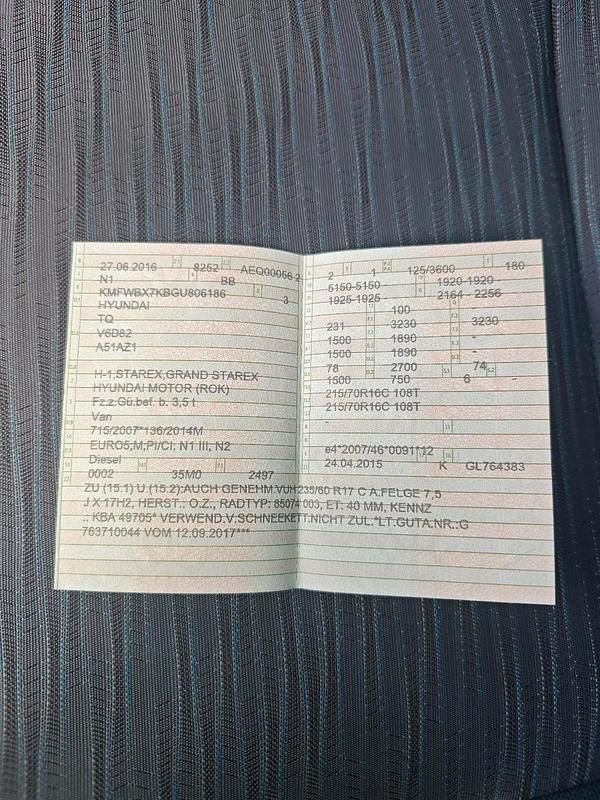 27.06.2016 8252 AEQ00056 2
N1 BB
KMFWBX7KBGU806186 3
HYUNDAI
TQ
V6D82
A51AZ1
H-1,STAREX,GRAND STAREX
HYUNDAI MOTOR (ROK)
Fz.z.Gü.bef. b. 3,5 t
Van
715/2007*136/2014M
EURO5;M;PI/CI; N1 III, N2
Diesel
0002 35M0 2497
2 1 125/3600 180
5150-5150 1920-1920
1925-1925 2164 - 2256
100
231 3230 3230
1500 1890 -
1500 1890 -
78 2700 74
1500 750 6 -
215/70R16C 108T
215/70R16C 108T
-
e4*2007/46*0091*12
24.04.2015 K GL764383
ZU (15.1) U.(15.2):AUCH GENEHM.VUH 235/60 R17 C A.FELGE 7,5
J X 17H2, HERST.: O.Z., RADTYP: 85074 003, ET: 40 MM, KENNZ
.: KBA 49705* VERWEND.V.SCHNEEKETT.NICHT ZUL.*LT.GUTA.NR.:G
763710044 VOM 12.09.2017***